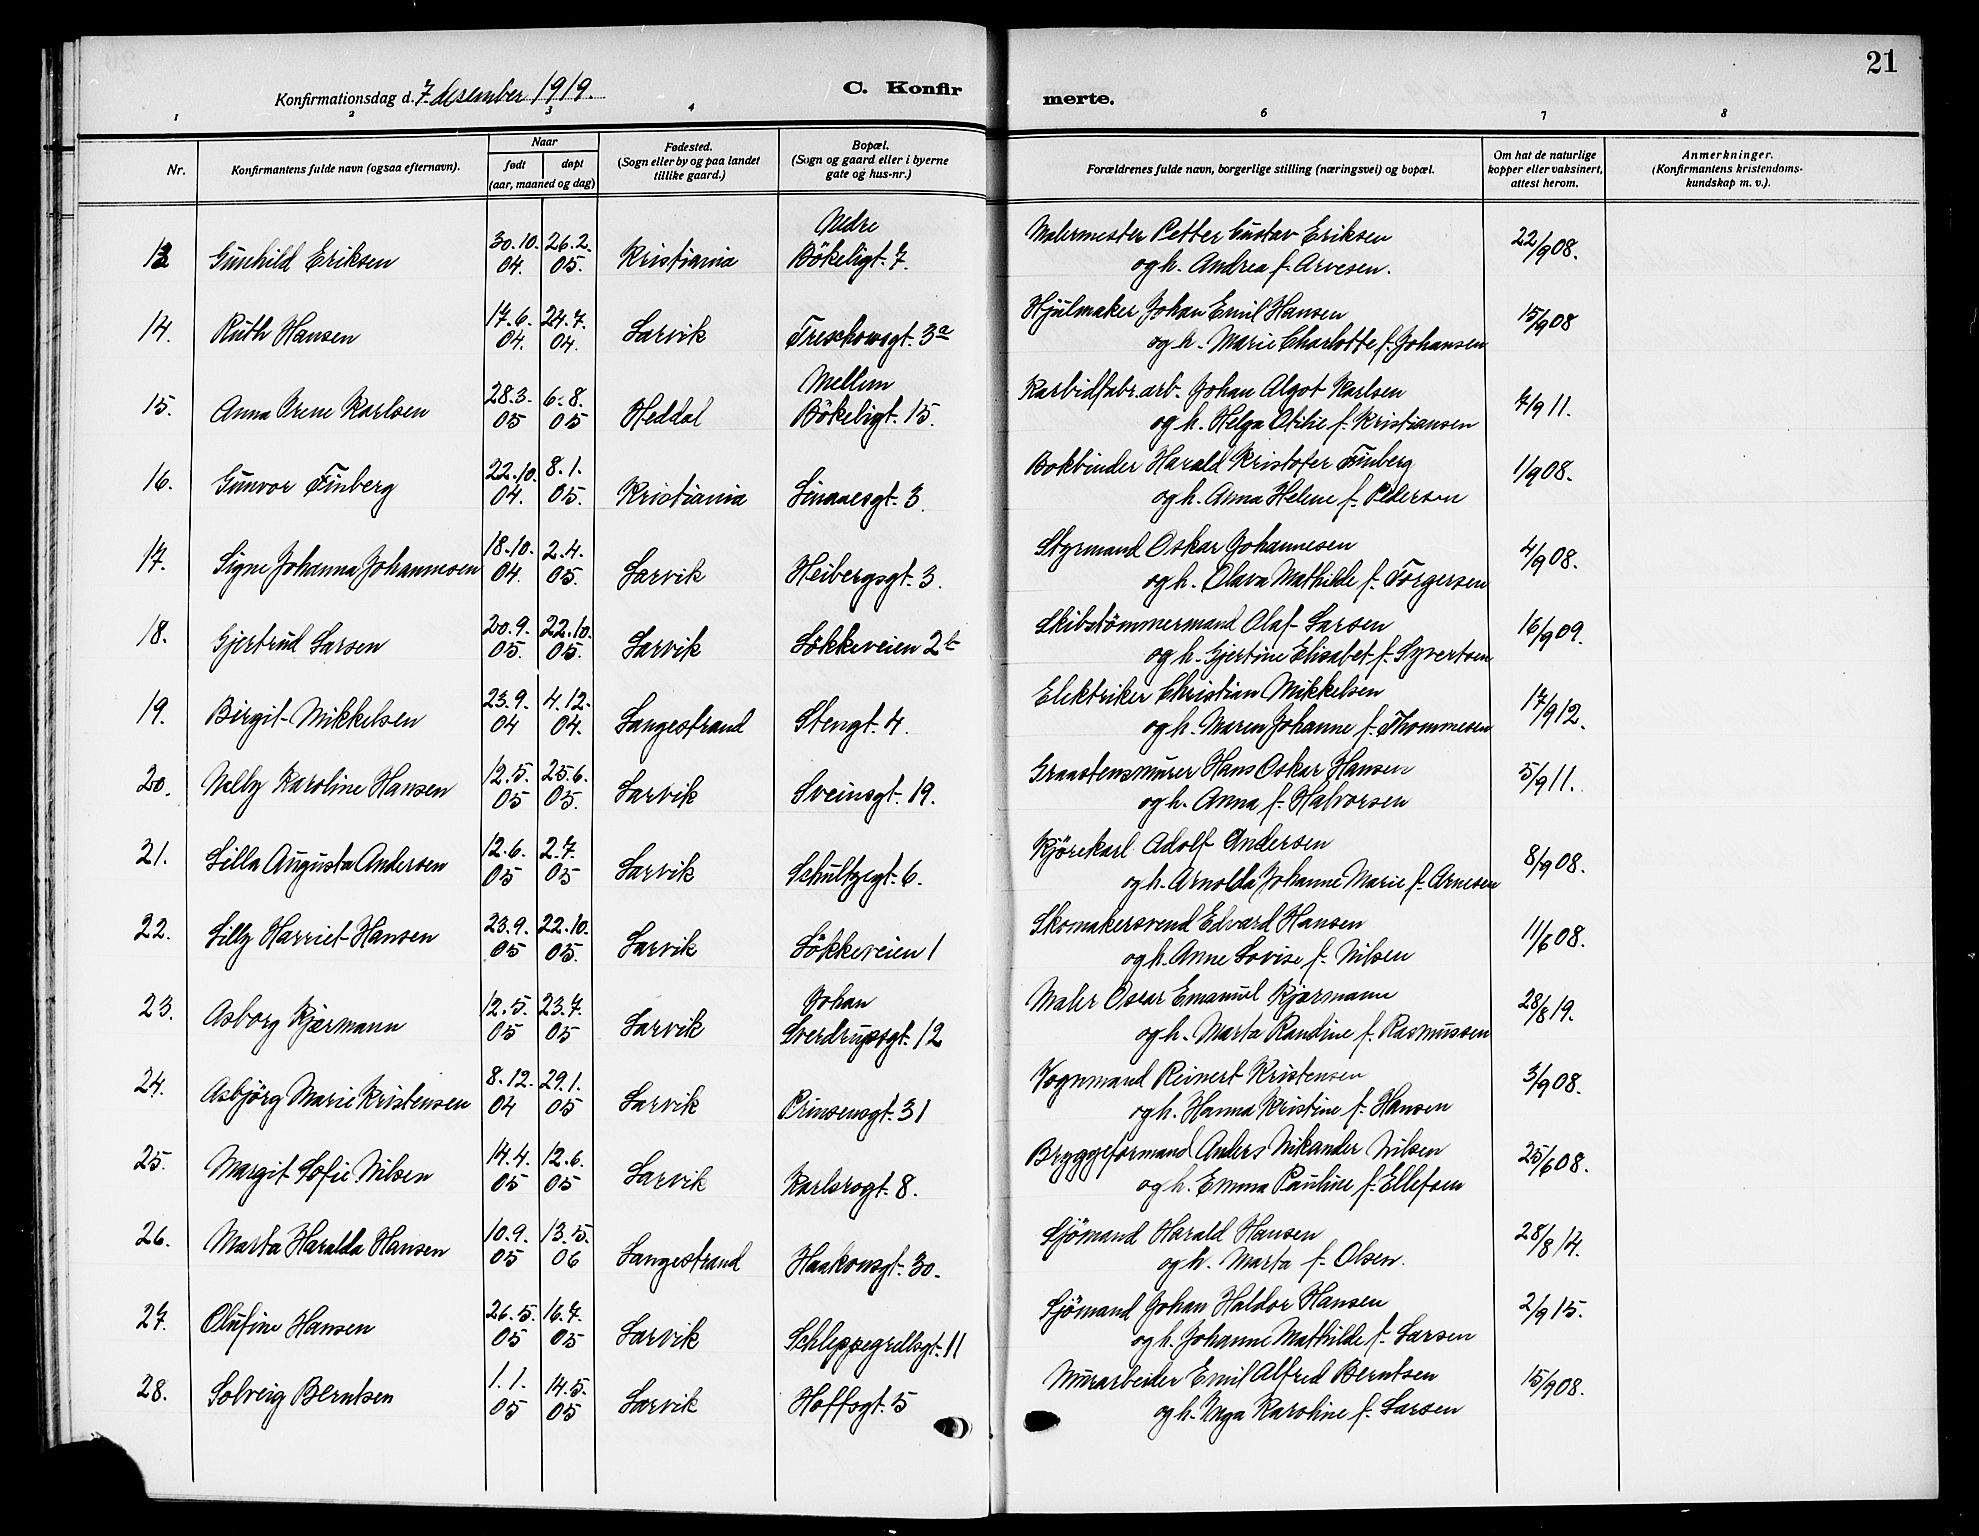 21
Konfirmationsdag d. 7 desember 1919.
C. Konfir
merte.
1 2 3 4 6 7 8
Nr.
Konfirmantens fulde navn (ogsaa efternavn).
Naar
født døpt
(aar, maaned og dag)
Fødested.
(Sogn eller by og paa landet
tillike gaard.)
Bopæl.
(Sogn og gaard eller i byerne
gate og hus-nr.)
Forældrenes fulde navn, borgerlige stilling (næringsvei) og bopæl.
Om hat de naturlige
kopper eller vaksinert,
attest herom.
Anmerkninger.
(Konfirmantens kristendoms-
kundskap m. v.).
13 Gunhild Eriksen 30.10. 04. 26.2. 05. Kristiania Nedre Bökeligt. 7. Malermester Petter Gustav Eriksen
og h. Andrea f. Arvesen. 22/9 08.
14. Ruth Hansen 17.6. 04. 24.7. 04. Larvik Treschowsgt. 3a Hjulmaker Johan Emil Hansen
og h. Marie Charlotte f. Johansen 15/9 08
15. Anna Irene Karlsen 28.3. 05 6.8. 05 Heddal Mellem Bökeligt. 15. Karbidfabr.arb. Johan Algot Karlsen
og h. Helga Otilie f. Kristiansen 7/9 11.
16. Gunvor Finberg 22.10. 04. 8.1. 05. Kristiania Linnaesgt. 3. Bokbinder Harald Kristofer Finberg
og h. Anna Helene f. Pedersen 1/9 08.
17. Signe Johanna Johannesen 18.10. 04. 2.4. 05. Larvik Heibergsgt. 3. Styrmand Oskar Johannesen
og h. Olava Mathilde f. Torgersen 4/9 08.
18. Gjertrud Larsen 20.9. 05. 22.10. 05. Larvik Lökkeveien 2b Skibstömmermand Olaf Larsen
og h. Gjertine Elisabet f. Syvertsen 16/9 09.
19. Birgit Mikkelsen 23.9. 04 4.12. 04. Langestrand Stengt. 4. Elektriker Christian Mikkelsen
og h. Maren Johanne f. Thommesen 17/9 12.
20. Nelly Karoline Hansen 12.5. 05 25.6. 05. Larvik Sveinsgt. 19. Graastensmurer Hans Oskar Hansen
og h. Anna f. Halvorsen 5/9 11.
21. Lilla Augusta Andersen 12.6. 05 2.7. 05 Larvik Schultzegt. 6. Kjörekarl Adolf Andersen
og h. Arnolda Johanne Marie f. Arnesen 8/9 08.
22. Lilly Harriet Hansen 23.9. 05 22.10. 05. Larvik Lökkeveien 1 Skomakersvend Edvard Hansen
og h. Anne Lovise f. Nilsen 11/6 08.
23. Asborg Kjærmann 12.5. 05 23.7. 05 Larvik Johan Sverdrupsgt. 12 Maler Oscar Emanuel Kjærmann
og h. Marta Randine f. Rasmussen 28/8 19.
24. Asbjörg Marie Kristensen 8.12. 04 29.1. 05 Larvik Prinsensgt. 31 Vognmand Reinert Kristensen
og h. Hanna Kristine f. Hansen 3/9 08.
25. Margit Sofie Nilsen 14.4. 05 12.6. 05 Larvik Karlsrogt. 8. Bryggeformand Anders Nikander Nilsen
og h. Emma Pauline f. Ellefsen 25/6 08.
26. Marta Haralda Hansen 10.9. 05 13.5. 06 Langestrand Haakonsgt. 30. Sjömand Harald Hansen
og h. Marta f. Olsen. 28/8 14.
27. Olufine Hansen 26.5. 05 16.7. 05 Larvik Schleppegrellsgt. 11 Sjömand Johan Haldor Hansen
og h. Johanne Mathilde f. Larsen 2/9 15.
28. Solveig Berntsen 1.1. 05 14.5. 05 Larvik Hoffsgt. 5 Murarbeider Emil Alfred Berntsen
og h. Inga Karoline f. Larsen 15/9 08.